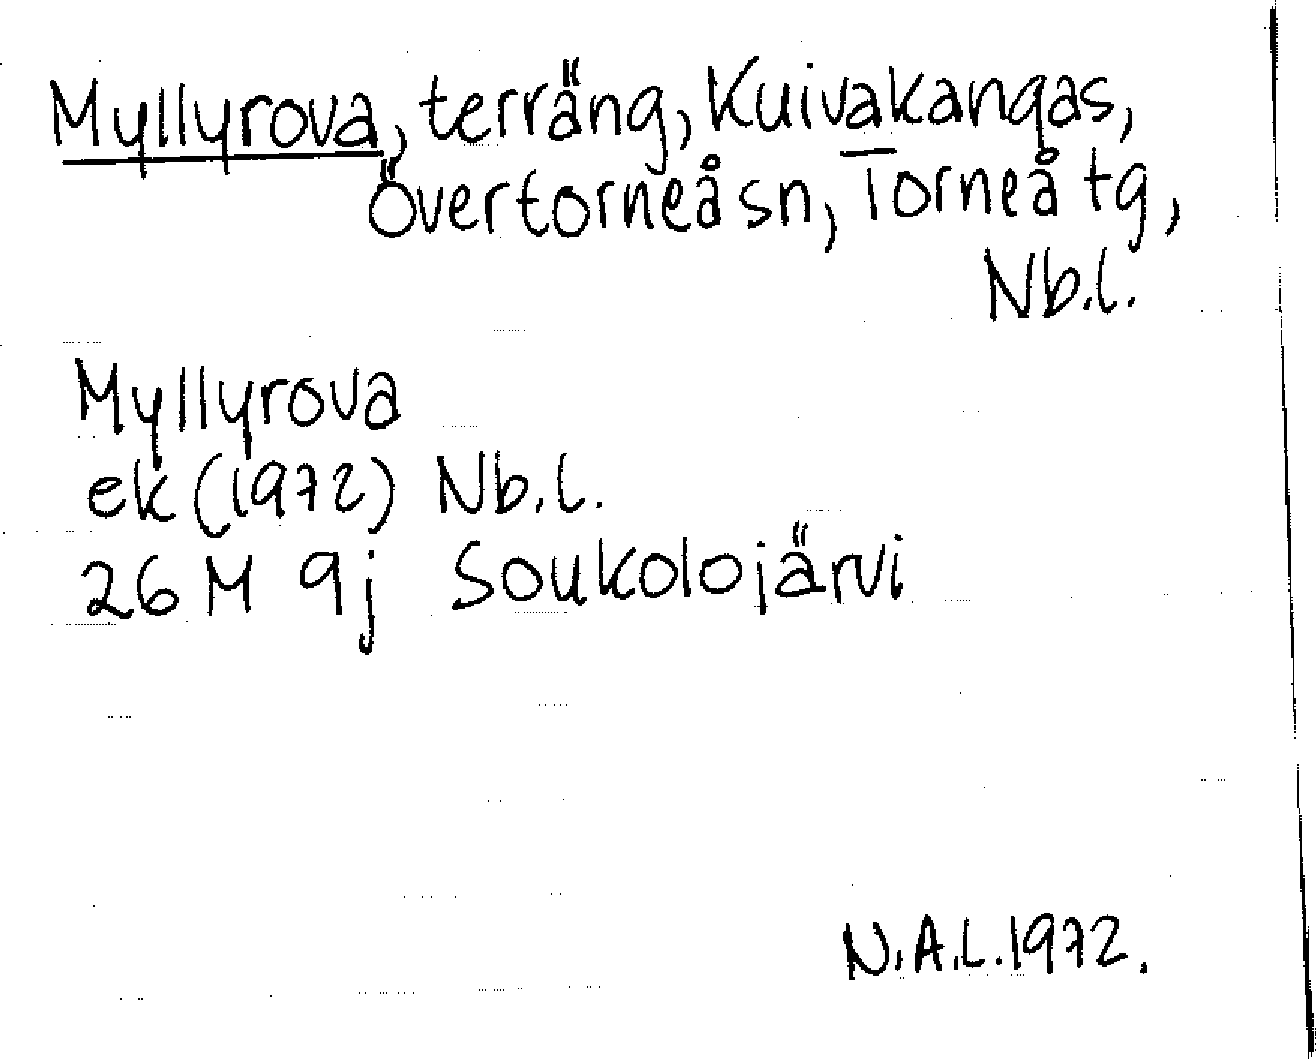 Myllyrova, terräng, Kuivakangas,
Övertorneå sn, Torneå tg,
Nb.l.
Myllyrova
ek (1972) Nb.l.
26 M 9j Soukolojärvi
N.A.L. 1972.